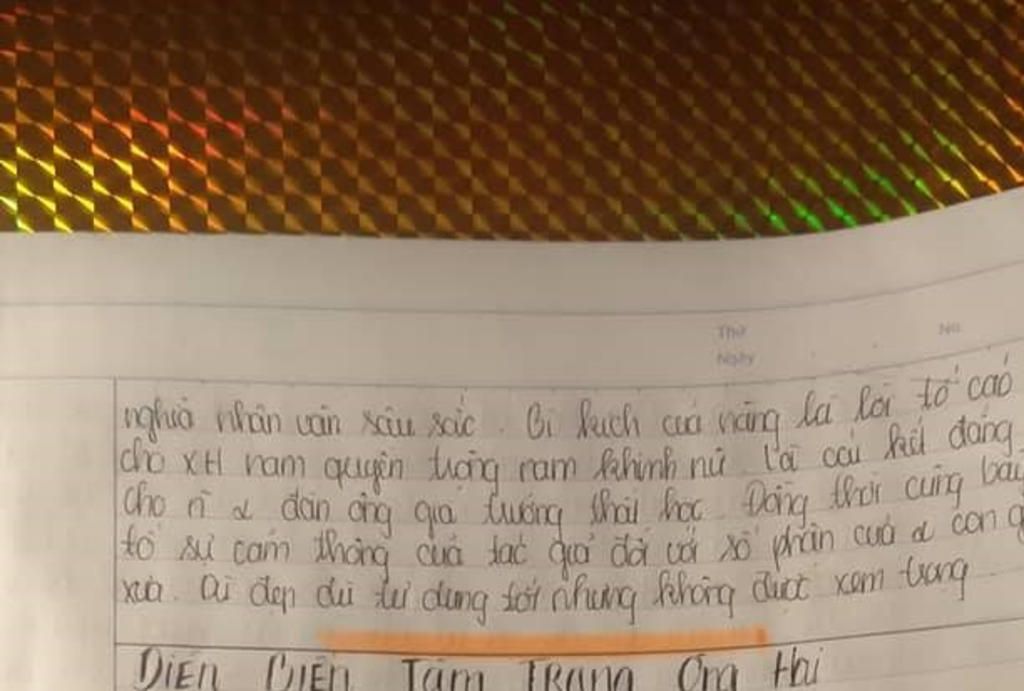 Thứ No.
Ngày
nghĩa nhân văn sâu sắc. Bi kịch của nàng là lời tố cáo
cho XH nam quyền trọng nam khinh nữ. là cái kết đắng
cho n~ đàn ông gia trưởng thất học. Đồng thời cũng bày
tỏ sự cảm thông của tác giả đối với số phận của con
xưa. Dù đẹp dù tư dung tốt nhưng không được xem trọng
DIỄN BIẾN TÂM TRẠNG Ông Hai